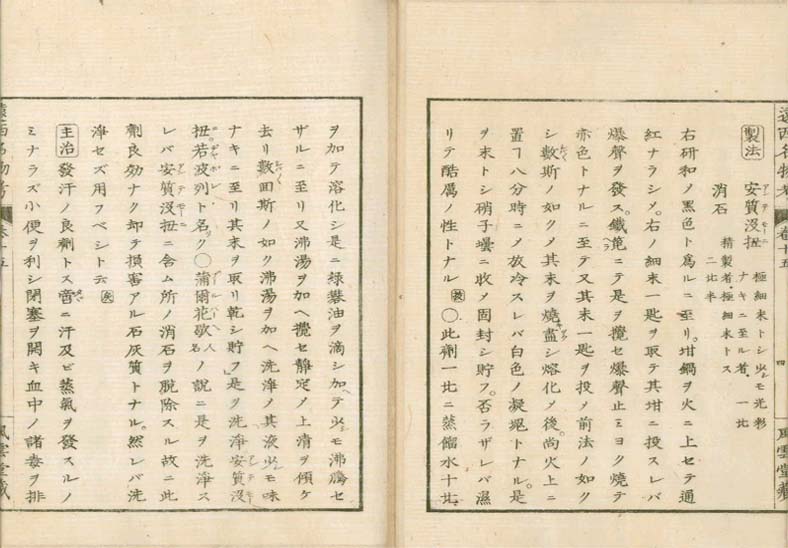 遠西名物考 卷十五 四 風雲堂藏
製法 安質没扭 極細末トシ少シモ光彩ナキニ至ル者 一比
消石 精製者極細末トス 二比半
右研和ノ黒色ト爲ルニ至リ。坩鍋ヲ火ニ上セテ通
紅ナラシメ。右ノ細末一匙ヲ取テ其坩ニ投スレバ
爆聲ヲ發ス。鐵篦ニテ是ヲ攪セ爆聲止ミヨク燒テ
赤色トナルニ至テ又其末一匙ヲ投メ前法ノ如ク
シ數斯ノ如クメ其末ヲ燒盡シ熔化メ後尚火上ニ
置ヿ八分時ニメ放冷スレバ白色ノ凝塊トナル。是
ヲ末トシ硝子壜ニ收メ固封シ貯フ。否ラザレバ濕
リテ酷厲ノ性トナル ◯此劑一比ニ蒸餾水十比
ヲ加テ溶化シ是ニ緑礬油ヲ滴シ加ヘテ少シモ沸騰セ
ザルニ至リ又沸湯ヲ加ヘ攪セ靜定ノ上清ヲ傾ケ
去リ數回斯ノ如ク沸湯ヲ加ヘ洗淨ノ其液少シモ味
ナキニ至リ其末ヲ取リ乾シ貯フ是ヲ洗淨安質没
扭若波列ト名ク◯蒲爾花歇人名ノ説ニ是ヲ洗淨ス
レバ安質没扭ニ含ム所ノ消石ヲ脱除スル故ニ此
劑良効ナク却テ損害アル石灰質トナル。然レバ洗
淨セズ用フベシト云
主治 發汗ノ良劑トス啻ニ汗及ビ蒸氣ヲ發スルノ
ミナラズ小便ヲ利シ閉塞ヲ開キ血中ノ諸毒ヲ排
遠西名物考 卷十五 風雲堂藏